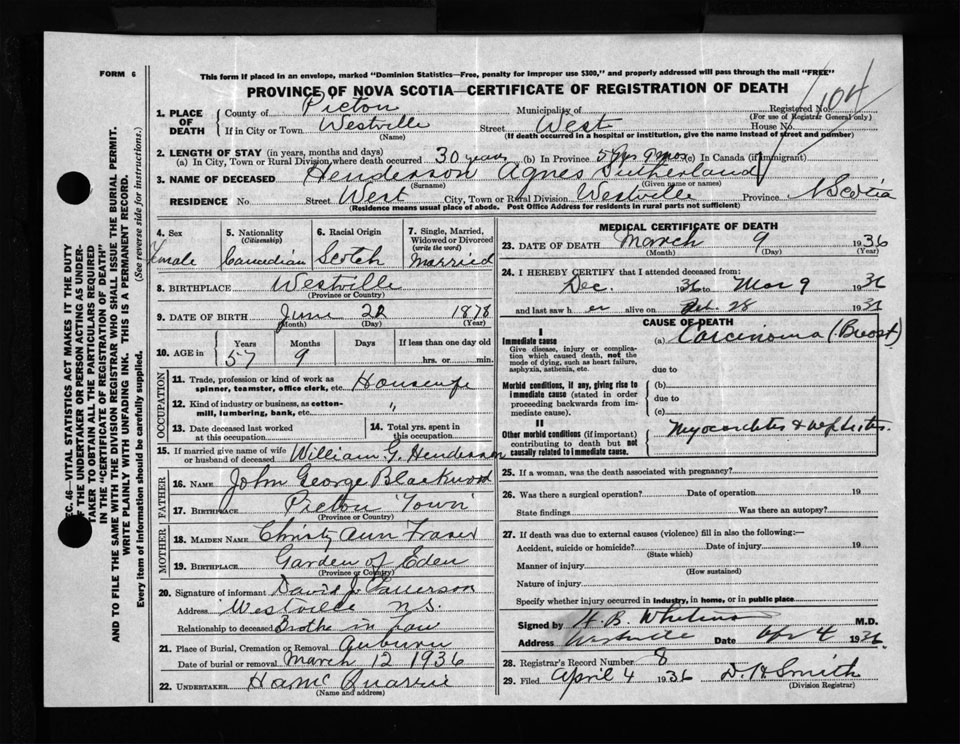 FORM 6
This form if placed in an envelope, marked "Dominion Statistics—Free, penalty for improper use $300," and properly addressed will pass through the mail "FREE"
PROVINCE OF NOVA SCOTIA—CERTIFICATE OF REGISTRATION OF DEATH
SEC. 46—VITAL STATISTICS ACT MAKES IT THE DUTY
OF THE UNDERTAKER OR PERSON ACTING AS UNDER-
TAKER TO OBTAIN ALL THE PARTICULARS REQUIRED
IN THE "CERTIFICATE OF REGISTRATION OF DEATH"
AND TO FILE THE SAME WITH THE DIVISION REGISTRAR WHO SHALL ISSUE THE BURIAL PERMIT.
WRITE PLAINLY WITH UNFADING INK. THIS IS A PERMANENT RECORD.
Every item of information should be carefully supplied. (See reverse side for instructions.)
1. PLACE OF DEATH County of Picton Municipality of Registered No. 104
(For use of Registrar General only)
If in City or Town Westville Street West House No.
(Name) (If death occurred in a hospital or institution, give the name instead of street and number)
2. LENGTH OF STAY (in years, months and days)
(a) In City, Town or Rural Division where death occurred 30 years (b) In Province 57 yrs 9 mos (c) In Canada (if immigrant)
3. NAME OF DECEASED Henderson Agnes Sutherland
(Surname) (Given name or names)
RESIDENCE No Street West City, Town or Rural Division Westville Province N Scotia
(Residence means usual place of abode. Post Office Address for residents in rural parts not sufficient)
4. Sex 5. Nationality (Citizenship) 6. Racial Origin 7. Single, Married, Widowed or Divorced (write the word)
Female Canadian Scotch Married
8. BIRTHPLACE Westville
(Province or Country)
9. DATE OF BIRTH June 1878
(Month) (Day) (Year)
10. AGE in Years Months Days If less than one day old
57 9 hrs. or min.
OCCUPATION
11. Trade, profession or kind of work as spinner, teamster, office clerk, etc. Housewife
12. Kind of industry or business, as cotton-mill, lumbering, bank, etc. "
13. Date deceased last worked at this occupation 14. Total yrs. spent in this occupation
15. If married give name of wife or husband of deceased William G. Henderson
FATHER
16. NAME John George Blackwood
17. BIRTHPLACE Picton Town
(Province or Country)
MOTHER
18. MAIDEN NAME Christy Ann Fraser
19. BIRTHPLACE Garden of Eden
(Province or Country)
20. Signature of informant David J. Patterson
Address Westville N.S.
Relationship to deceased Brother in law
21. Place of Burial, Cremation or Removal Auburn
Date of burial or removal March 12 1936
22. UNDERTAKER
(Name and address)
MEDICAL CERTIFICATE OF DEATH
23. DATE OF DEATH March 9 1936
(Month) (Day) (Year)
24. I HEREBY CERTIFY that I attended deceased from:
Dec. to Mar 9 1936
and last saw h er alive on Feb. 28 193
CAUSE OF DEATH
I
Immediate cause
Give disease, injury or complication which caused death, not the mode of dying, such as heart failure, asphyxia, asthenia, etc.
(a) Carcinoma (Breast)
due to
Morbid conditions, if any, giving rise to immediate cause (stated in order proceeding backwards from immediate cause).
(b)
due to
(c)
II
Other morbid conditions (if important) contributing to death but not causally related to immediate cause.
Myocarditis & nephritis.
25. If a woman, was the death associated with pregnancy?
26. Was there a surgical operation? Date of operation 19
State findings Was there an autopsy?
27. If death was due to external causes (violence) fill in also the following:—
Accident, suicide or homicide? Date of injury 19
(State which)
Manner of injury
(How sustained)
Nature of injury
Specify whether injury occurred in industry, in home, or in public place
Signed by M.D.
Address Westville Date Apr 4 1936
28. Registrar's Record Number 8
29. Filed April 4 1936 D. H. Smith
(Division Registrar)